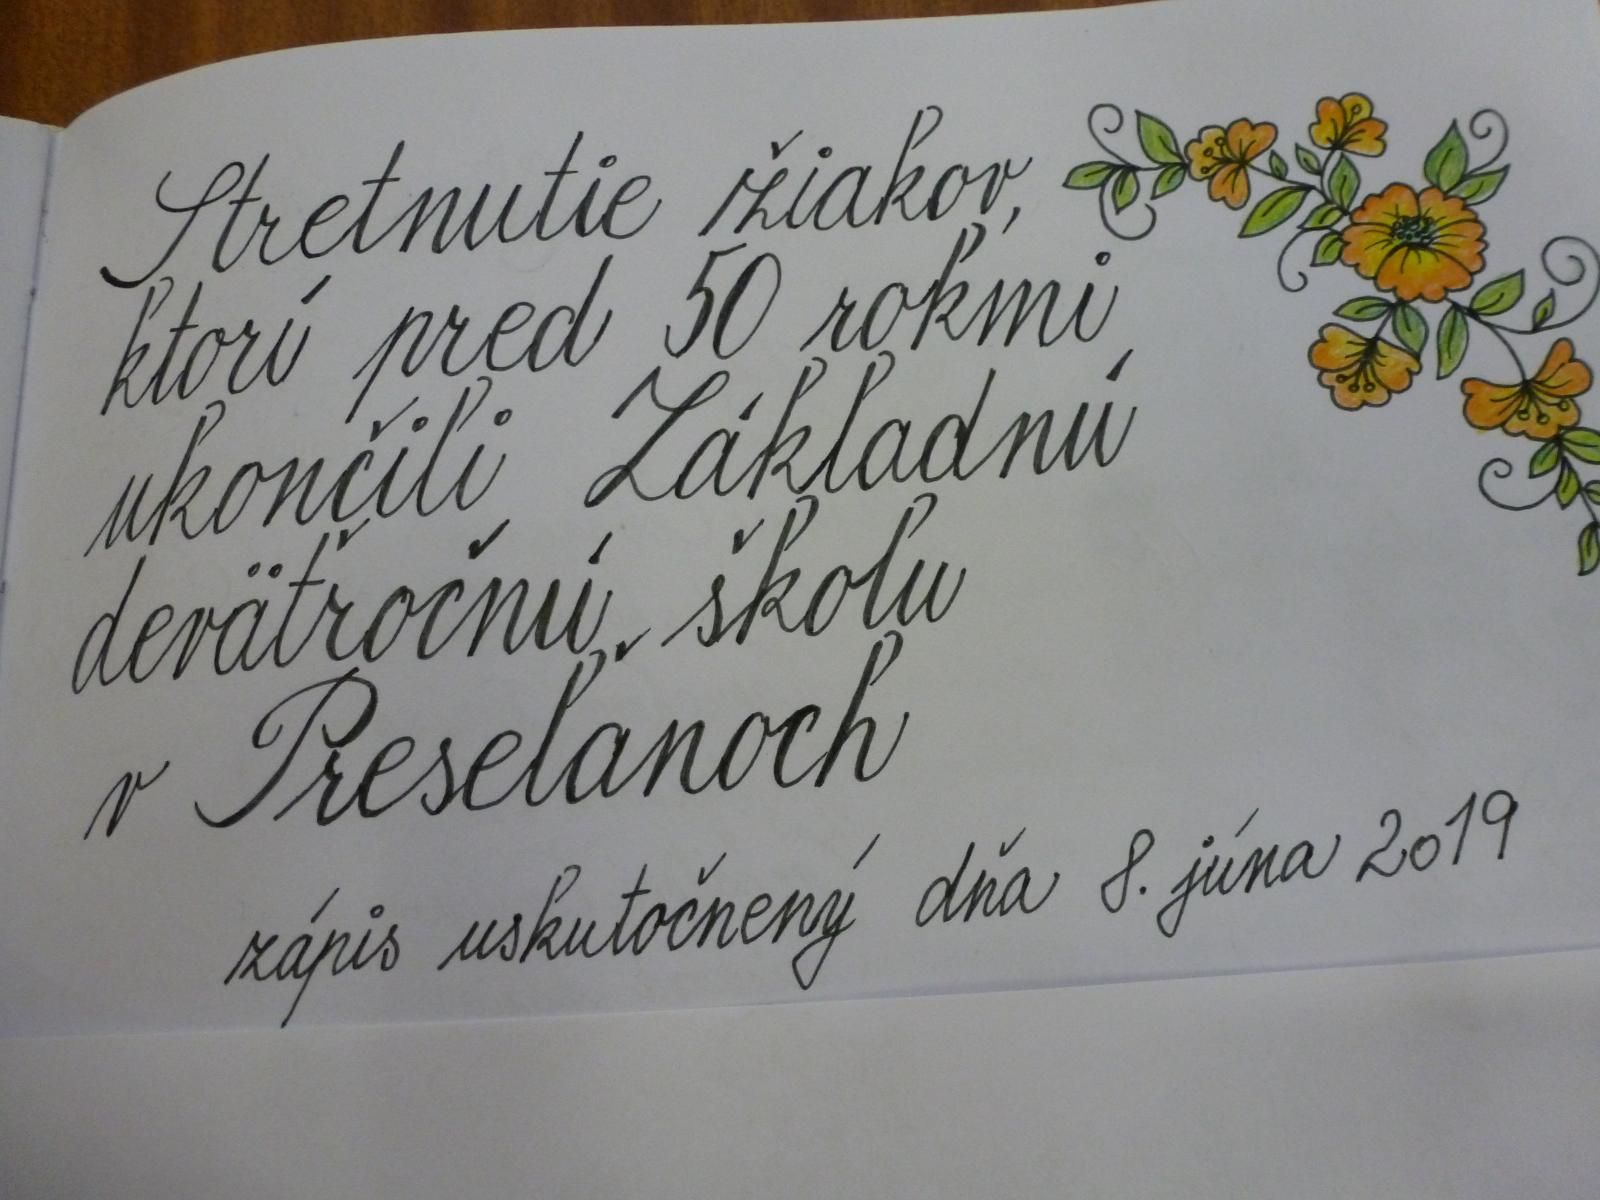 Stretnutie žiakov,
ktorí pred 50 rokmi
ukončili Základnú
deväťročnú školu
v Preseľanoch
zápis uskutočnený dňa 8. júna 2019